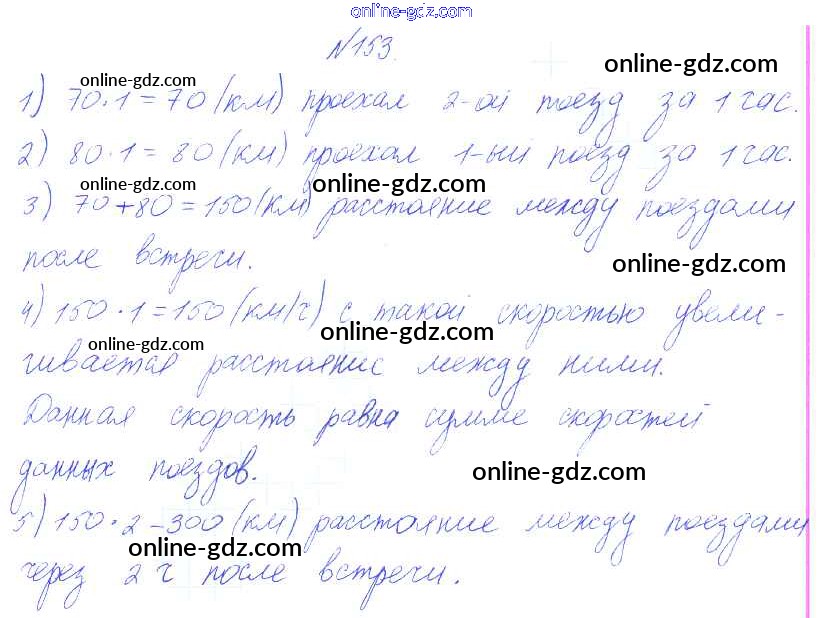 online-gdz.com
№153.
online-gdz.com
online-gdz.com
1) 70·1=70 (км) проехал 2-ой поезд за 1 час.
online-gdz.com
2) 80·1=80 (км) проехал 1-ый поезд за 1 час.
online-gdz.com
online-gdz.com
3) 70+80=150 (км) расстояние между поездами
после встречи.
online-gdz.com
4) 150·1=150 (км/ч) с такой скоростью увели-
online-gdz.com
online-gdz.com
чивается расстояние между ними.
Данная скорость равна сумме скоростей
данных поездов.
online-gdz.com
5) 150·2-300 (км) расстояние между поездами
online-gdz.com
через 2 ч после встречи.
online-gdz.com